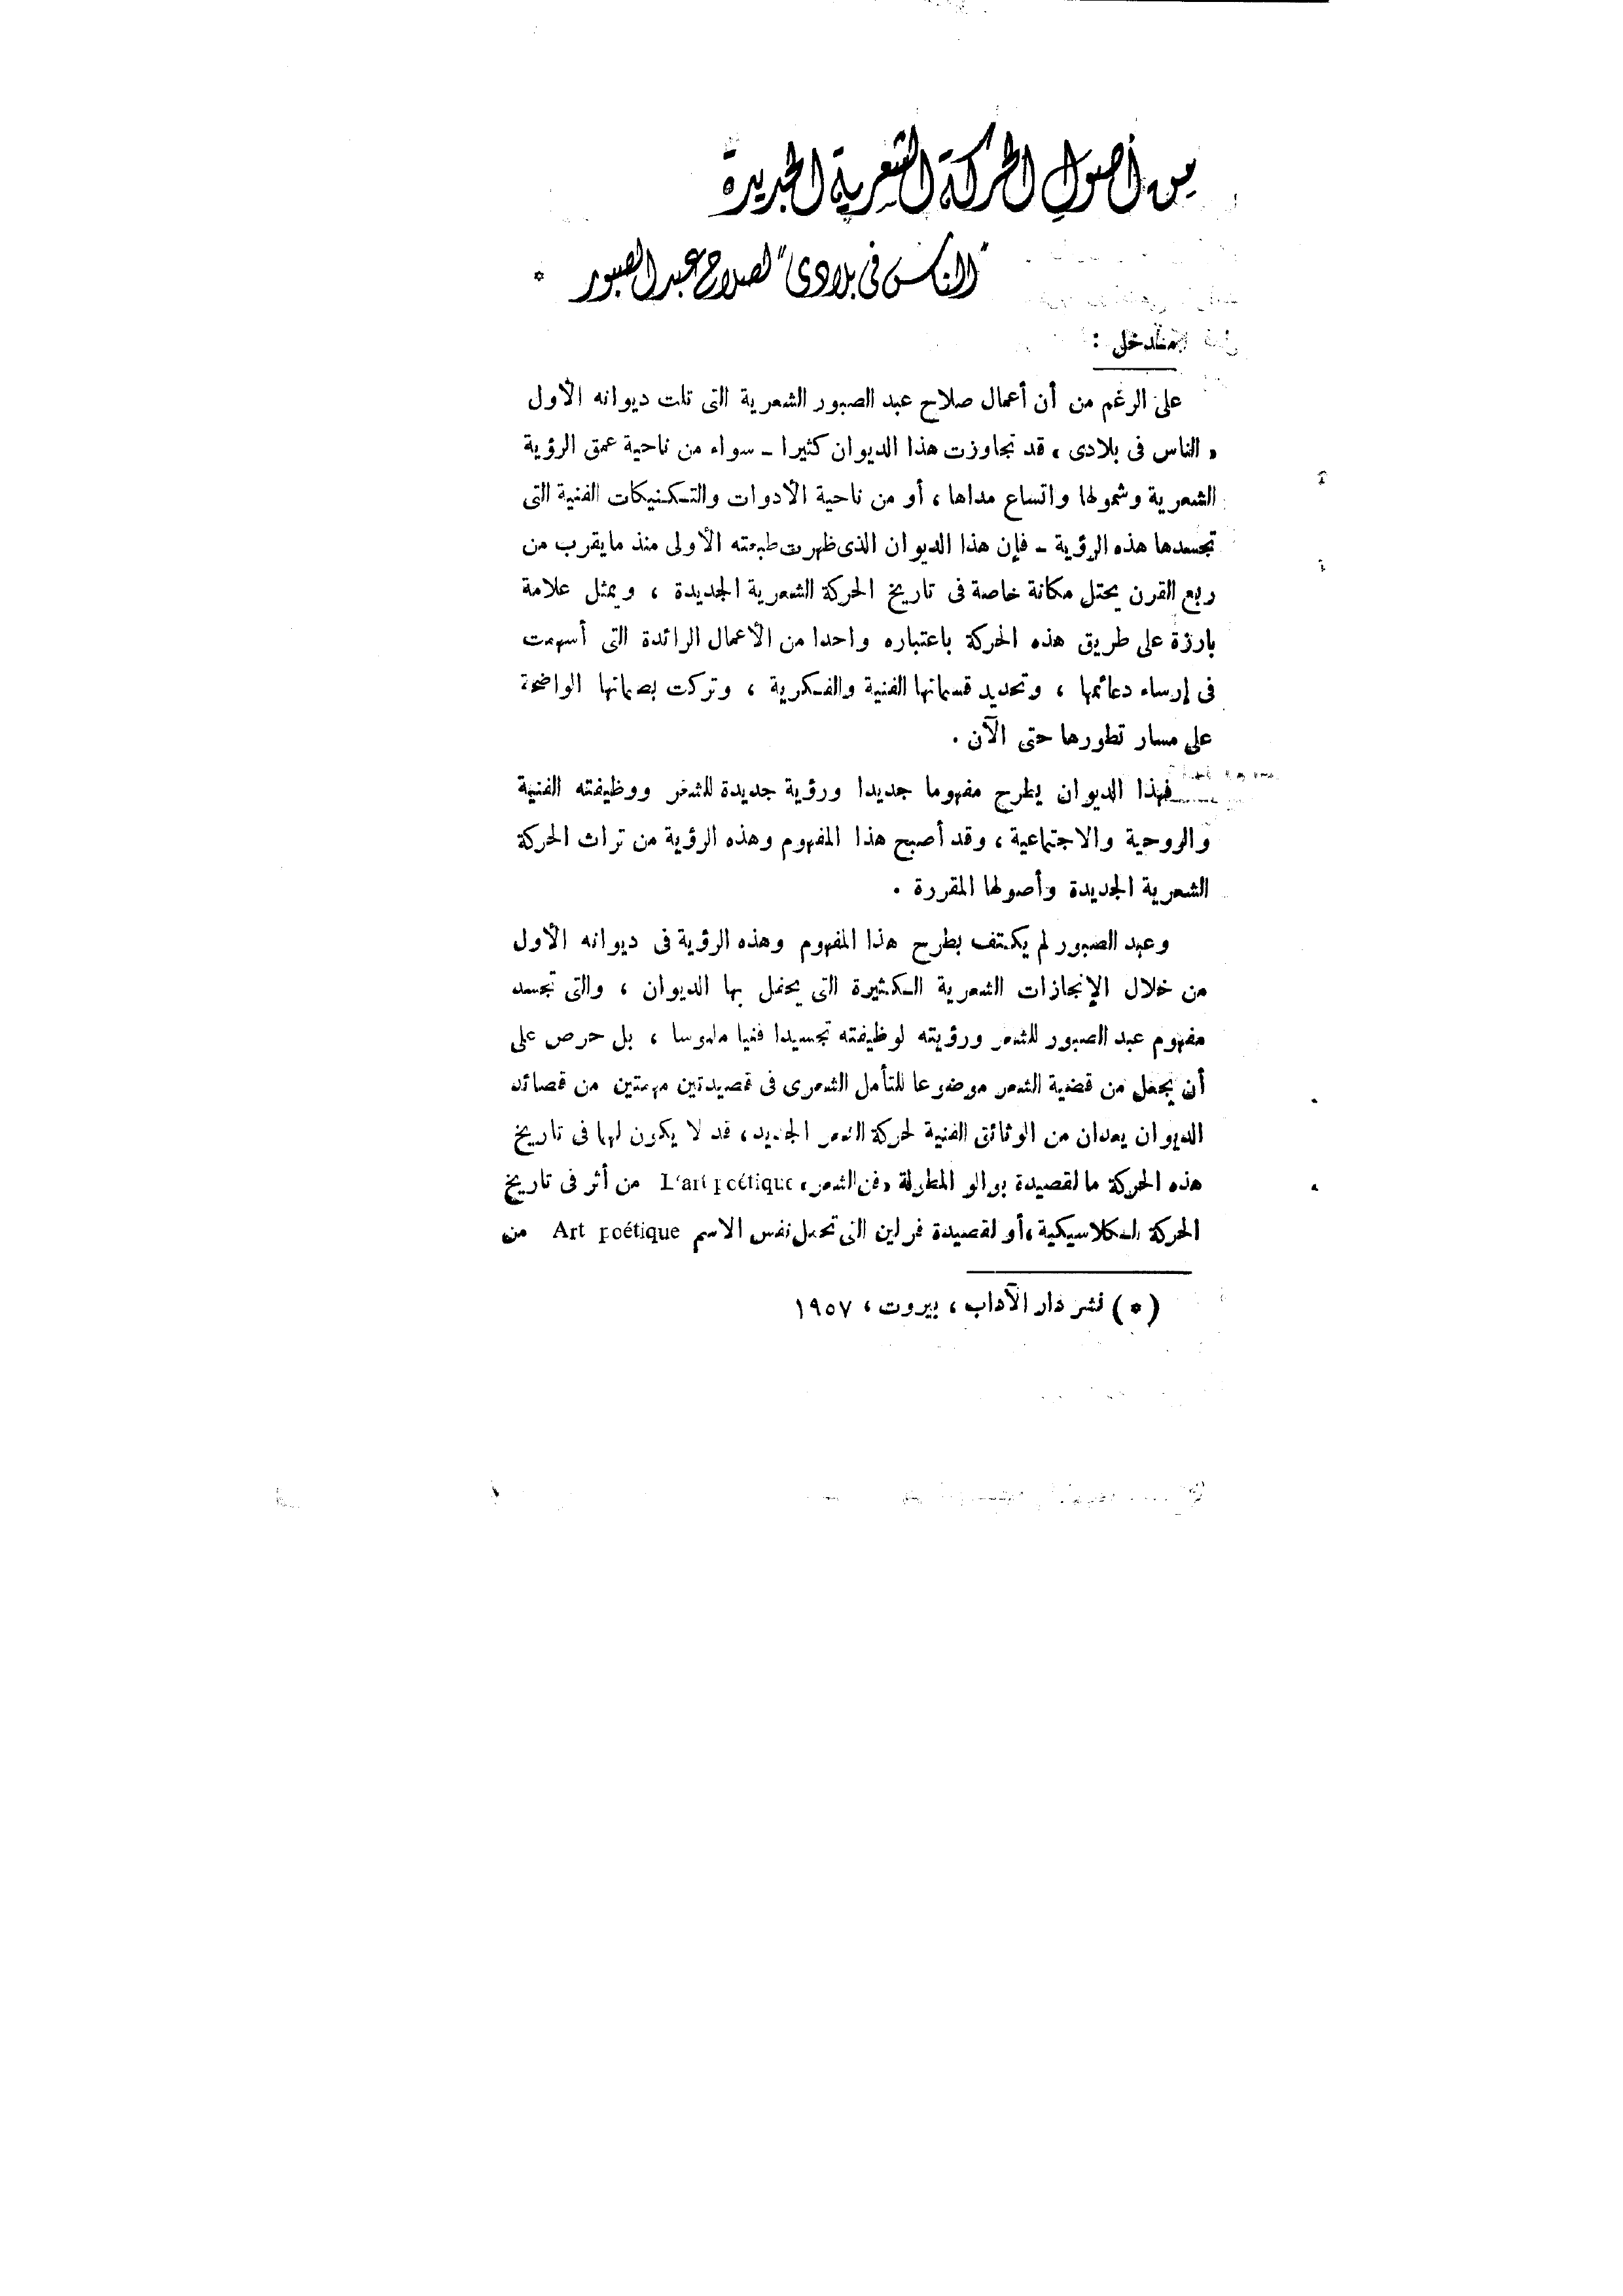 من أصول الحركة الشعرية الجديدة
"الناس فى بلادى" لصلاح عبد الصبور *
مدخل :
على الرغم من أن أعمال صلاح عبد الصبور الشعرية التى تلت ديوانه الأول
« الناس فى بلادى » قد تجاوزت هذا الديوان كثيرا ـ سواء من ناحية عمق الرؤية
الشعرية وشمولها واتساع مداها ، أو من ناحية الأدوات والتكنيكات الفنية التى
تجسدها هذه الرؤية ـ فإن هذا الديوان الذى ظهرت طبعته الأولى منذ ما يقرب من
ربع القرن يحتل مكانة خاصة فى تاريخ الحركة الشعرية الجديدة ، ويمثل علامة
بارزة على طريق هذه الحركة باعتباره واحدا من الأعمال الرائدة التى أسهمت
فى إرساء دعائمها ، وتحديد قسماتها الفنية والفكرية ، وتركت بصماتها الواضحة
على مسار تطورها حتى الآن .
فهذا الديوان يطرح مفهوما جديدا ورؤية جديدة للشعر ووظيفته الفنية
والروحية والاجتماعية ، وقد أصبح هذا المفهوم وهذه الرؤية من تراث الحركة
الشعرية الجديدة وأصولها المقررة .
وعبد الصبور لم يكتف بطرح هذا المفهوم وهذه الرؤية فى ديوانه الأول
من خلال الإنجازات الشعرية الكثيرة التى يحفل بها الديوان ، والتى تجسد
مفهوم عبد الصبور للشعر ورؤيته لوظيفته تجسيدا فنيا ملموسا ، بل حرص على
أن يجعل من قضية الشعر موضوعا للتأمل الشعرى فى قصيدتين مهمتين من قصائد
الديوان يعدان من الوثائق الفنية لحركة الشعر الجديد ، قد لا يكون لهما فى تاريخ
هذه الحركة ما لقصيدة بوالو المطولة « فن الشعر » L'art poétique من أثر فى تاريخ
الحركة الكلاسيكية ، أو لقصيدة فرلين التى تحمل نفس الاسم Art poétique من
( * ) نشر دار الآداب ، بيروت ، ١٩٥٧